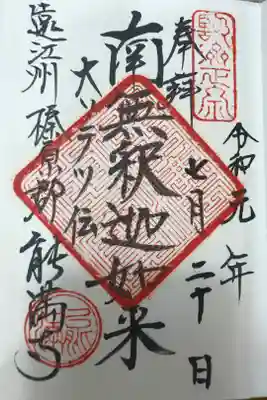 奉拝
令和元年
七月二十日
南無釈迦如来
大ソテツ伝
遠江州榛原郡能満寺